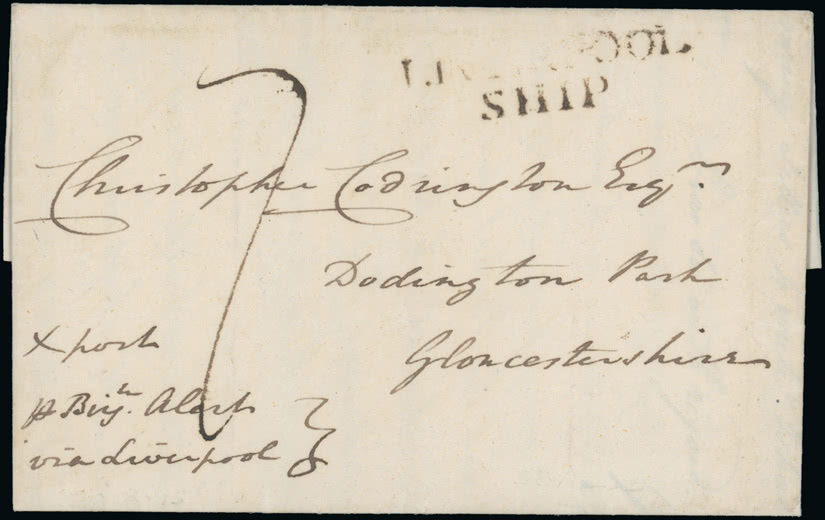 LIVERPOOL
SHIP
7
Christopher Codrington Esqr.
Dodington Park
Gloucestershire
X post
via Liverpool